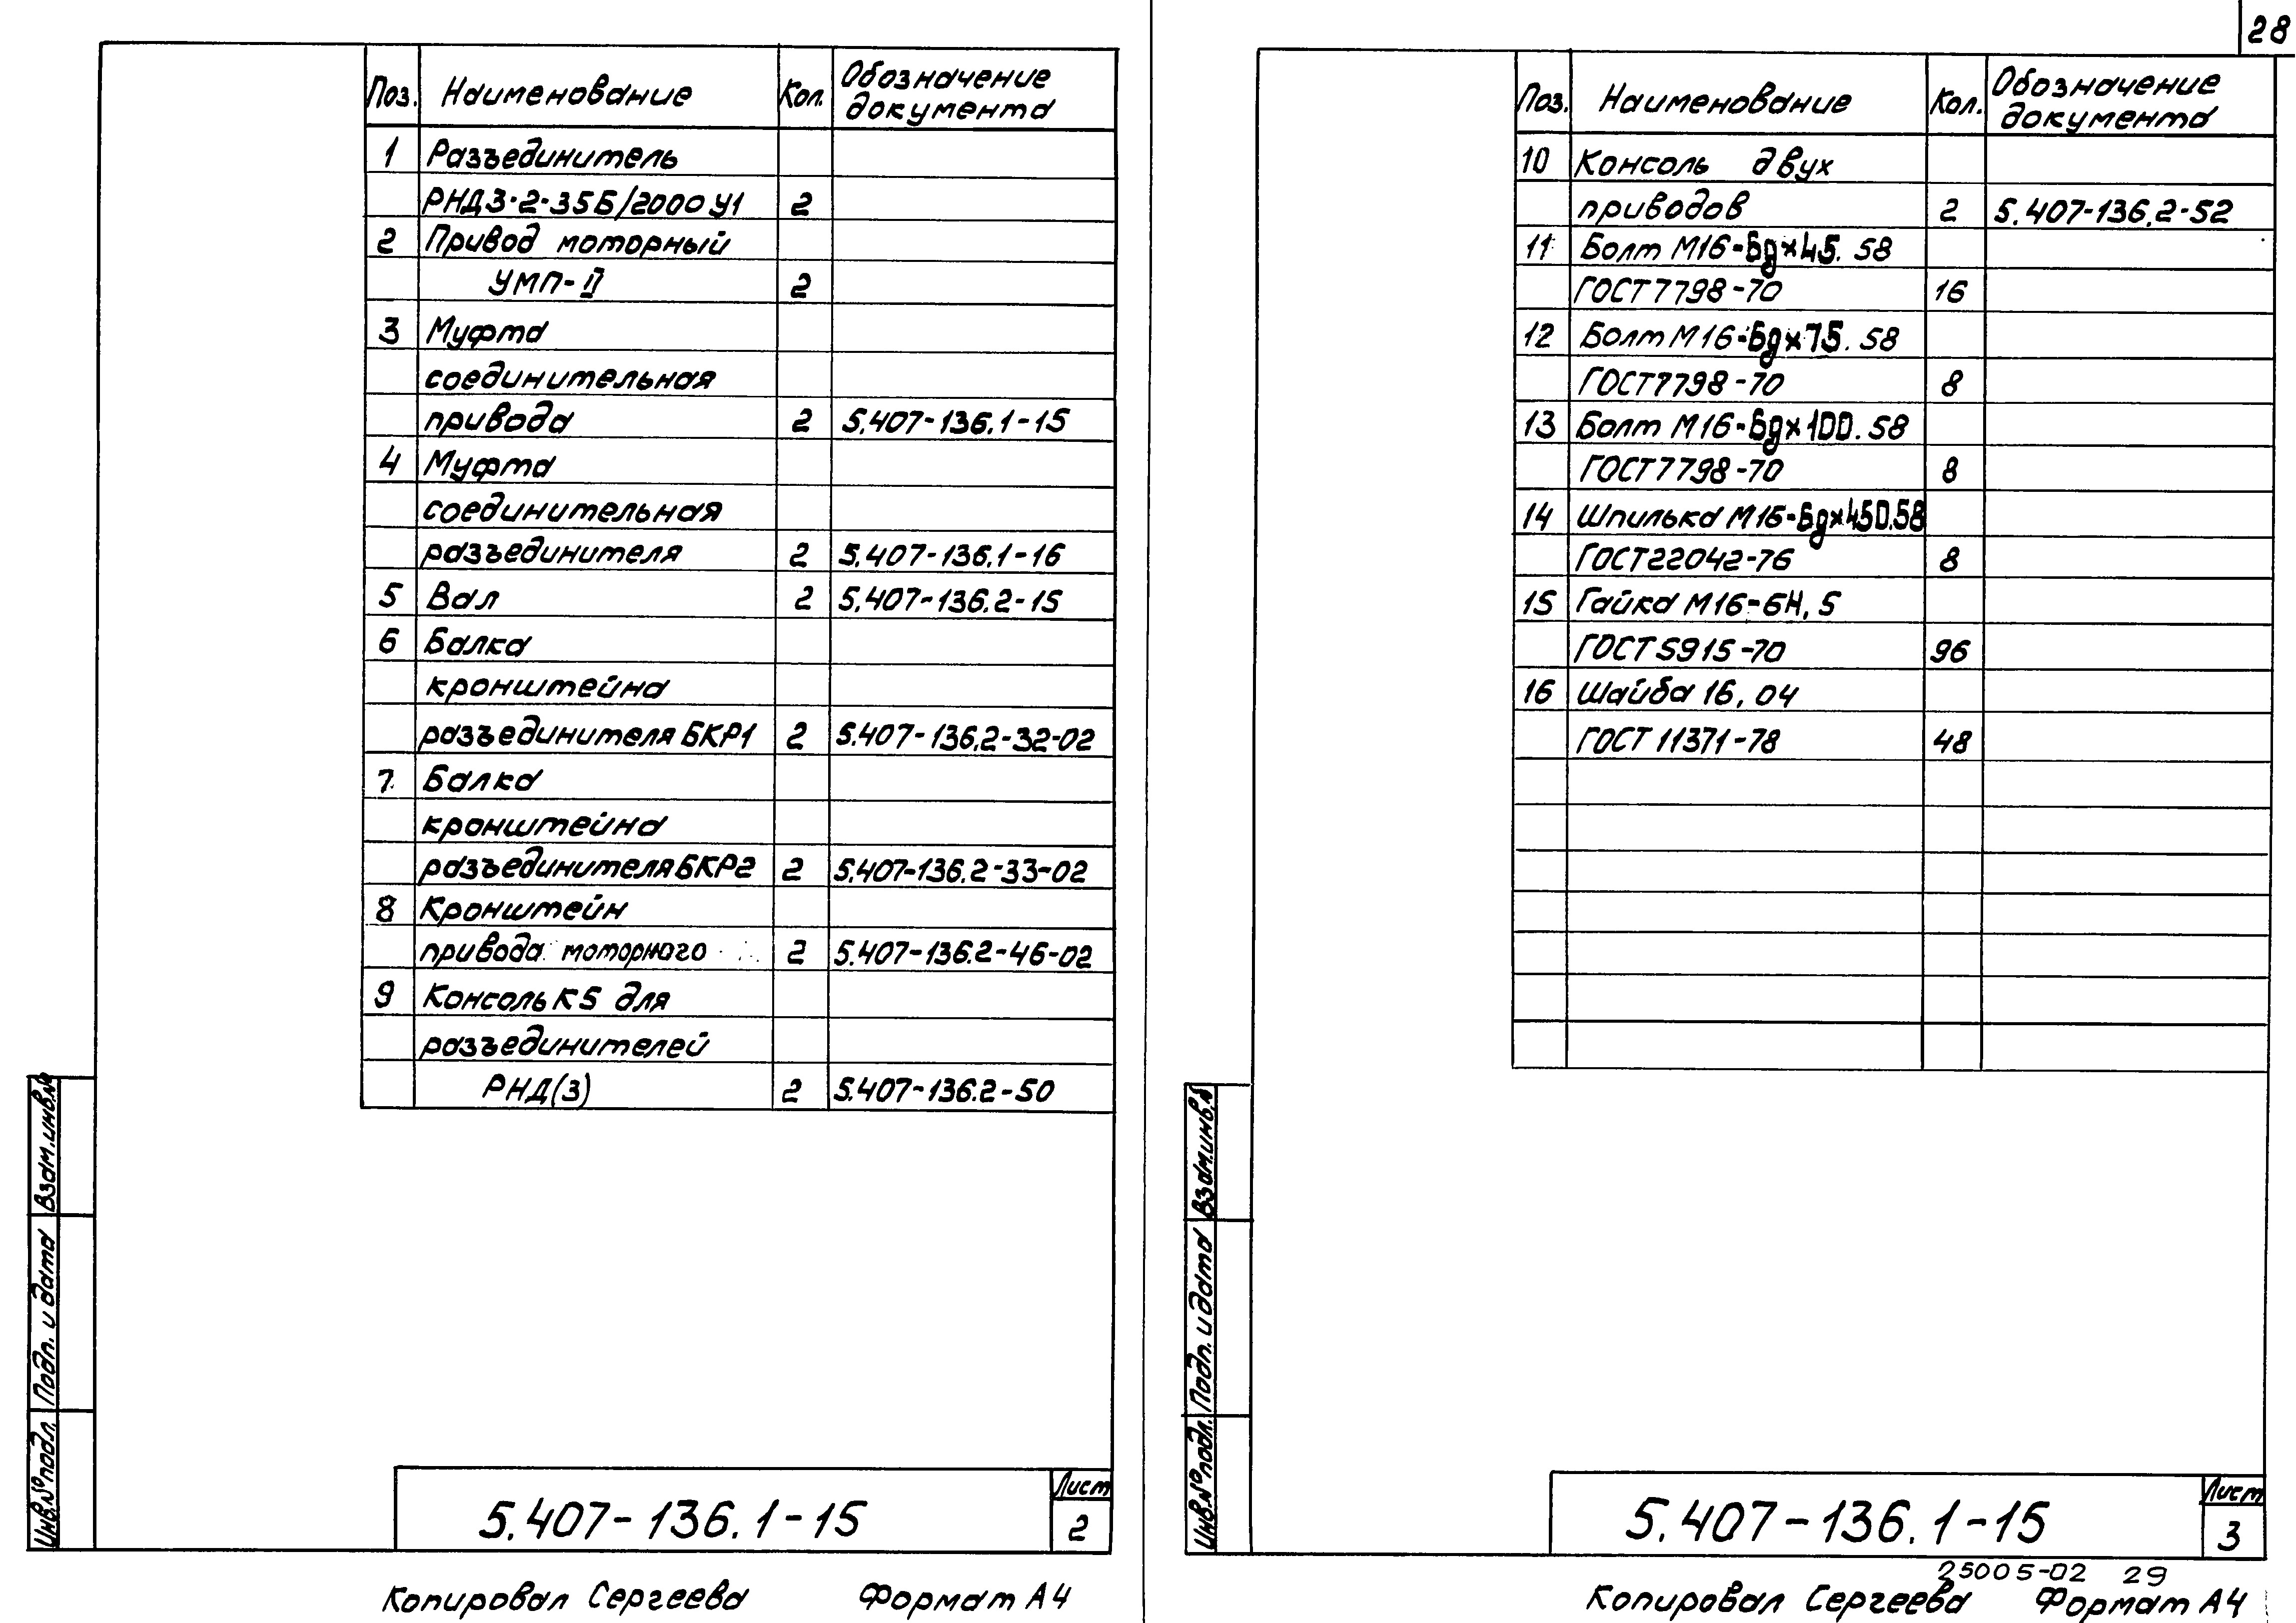 Поз. Наименование Кол. Обозначение документа
1 Разъединитель
РНДЗ-2-35Б/2000 У1 2
2 Привод моторный
УМП-II 2
3 Муфта
соединительная
привода 2 5.407-136.1-15
4 Муфта
соединительная
разъединителя 2 5.407-136.1-16
5 Вал 2 5.407-136.2-15
6 Балка
кронштейна
разъединителя БКР1 2 5.407-136.2-32-02
7 Балка
кронштейна
разъединителя БКР2 2 5.407-136.2-33-02
8 Кронштейн
привода моторного 2 5.407-136.2-46-02
9 Консоль К5 для
разъединителей
РНД(З) 2 5.407-136.2-50
Взам.инв.№
Подп. и дата
Инв.№ подл.
5.407-136.1-15
Лист
2
Копировал Сергеева Формат А4
28
Поз. Наименование Кол. Обозначение документа
10 Консоль двух
приводов 2 5.407-136.2-52
11 Болт М16-6g×45.58
ГОСТ 7798-70 16
12 Болт М16-6g×75.58
ГОСТ 7798-70 8
13 Болт М16-6g×100.58
ГОСТ 7798-70 8
14 Шпилька М16-6g×450.58
ГОСТ 22042-76 8
15 Гайка М16-6Н,5
ГОСТ 5915-70 96
16 Шайба 16,04
ГОСТ 11371-78 48
Взам.инв.№
Подп. и дата
Инв.№ подл.
5.407-136.1-15
Лист
3
25005-02 29
Копировал Сергеева Формат А4